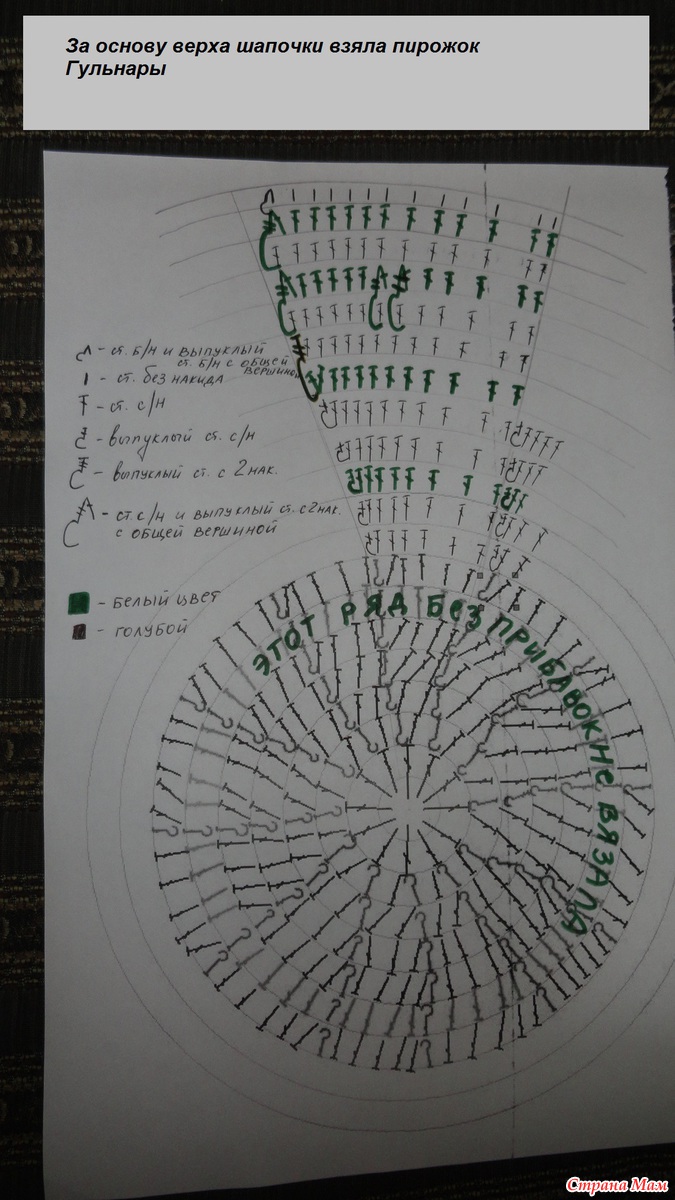 За основу верха шапочки взяла пирожок
Гульнары
- ст. б/н и выпуклый
ст. б/н с общей
вершиной
- ст. без накида
- ст. с/н
- выпуклый ст. с/н
- выпуклый ст. с 2 нак.
- ст. с/н и выпуклый ст. с 2 нак.
с общей вершиной
- белый цвет
- голубой
ЭТОТ РЯД БЕЗ ПРИБАВОК НЕ ВЯЗАЛА
Страна Мам